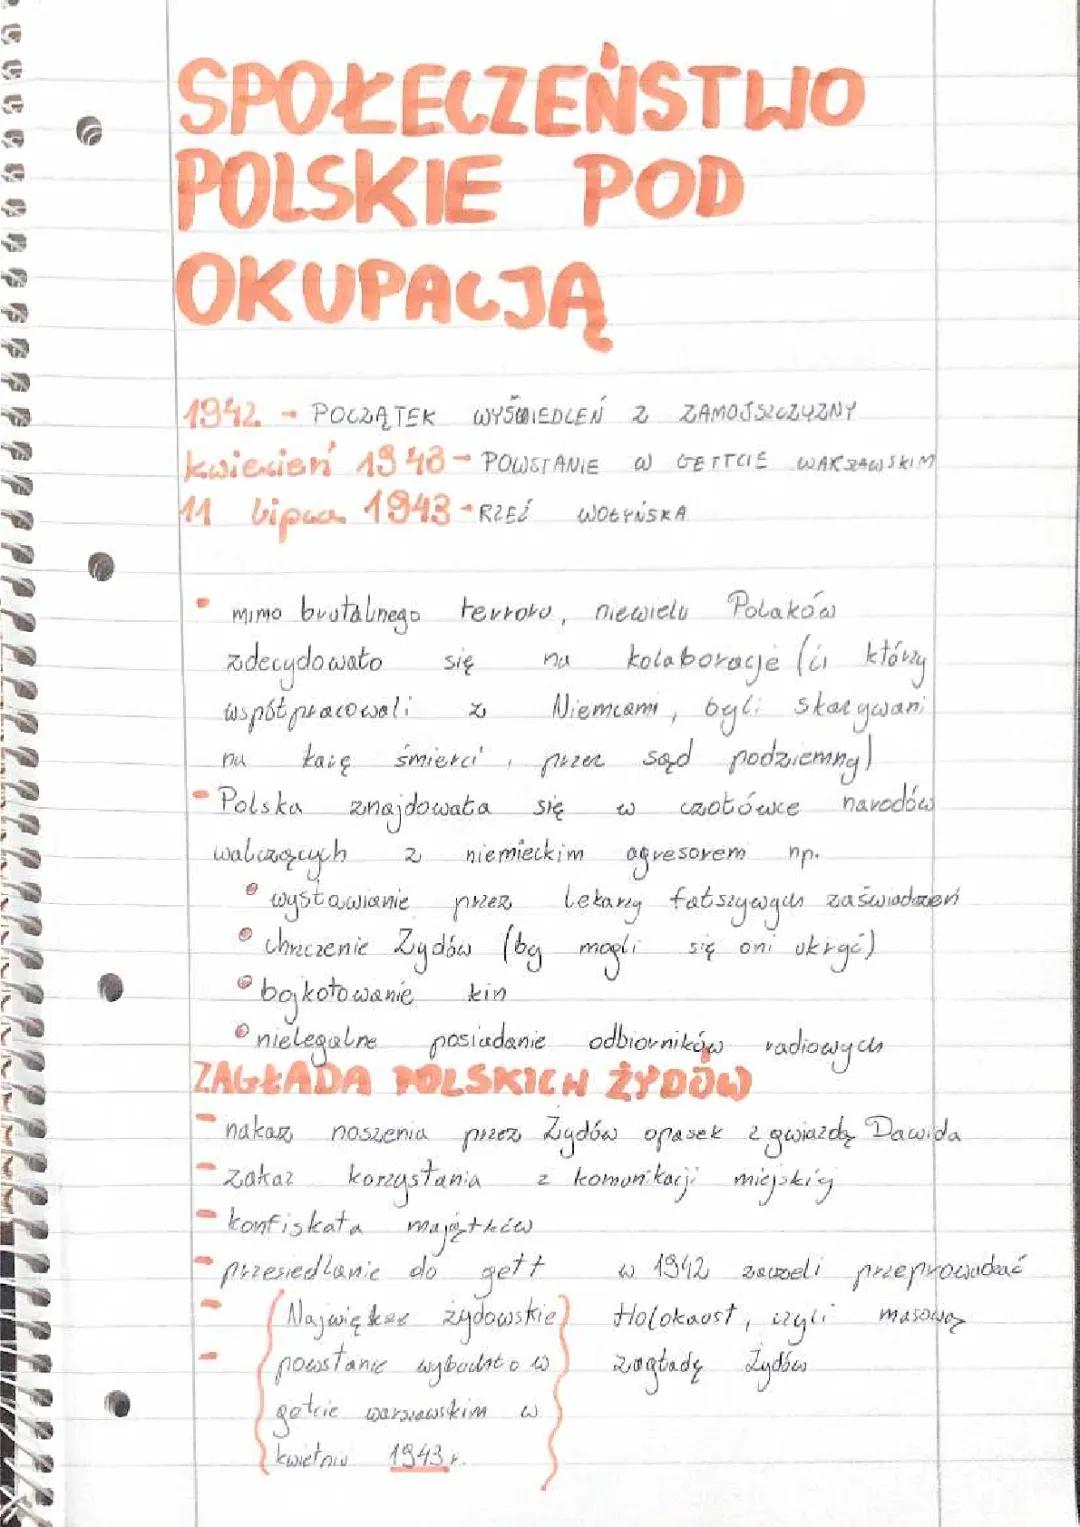 SPOŁECZEŃSTWO
POLSKIE POD
OKUPACJĄ
1942 - POCZĄTEK WYSIEDLEŃ Z ZAMOJSZCZYZNY
kwiecień 1943 - POWSTANIE W GETTCIE WARSZAWSKIM
11 lipca 1943 - RZEŹ WOŁYŃSKA
- mimo brutalnego terroru, niewielu Polaków
zdecydowało się na kolaboracje (ci którzy
współpracowali z Niemcami, byli skazywani
na karę śmierci, przez sąd podziemny)
- Polska znajdowała się w czołówce narodów
walczących z niemieckim agresorem np.
• wystawianie przez lekarzy fałszywych zaświadczeń
• chrzczenie Żydów (by mogli się oni ukryć)
• bojkotowanie kin
• nielegalne posiadanie odbiorników radiowych
ZAGŁADA POLSKICH ŻYDÓW
- nakaz noszenia przez Żydów opasek z gwiazdą Dawida
- zakaz korzystania z komunikacji miejskiej
- konfiskata majątków
- przesiedlanie do gett
w 1942 zaczeli przeprowadzać
Holokaust, czyli masową
zagładę Żydów
Największe żydowskie
powstanie wybuchło w
getcie warszawskim w
kwietniu 1943 r.